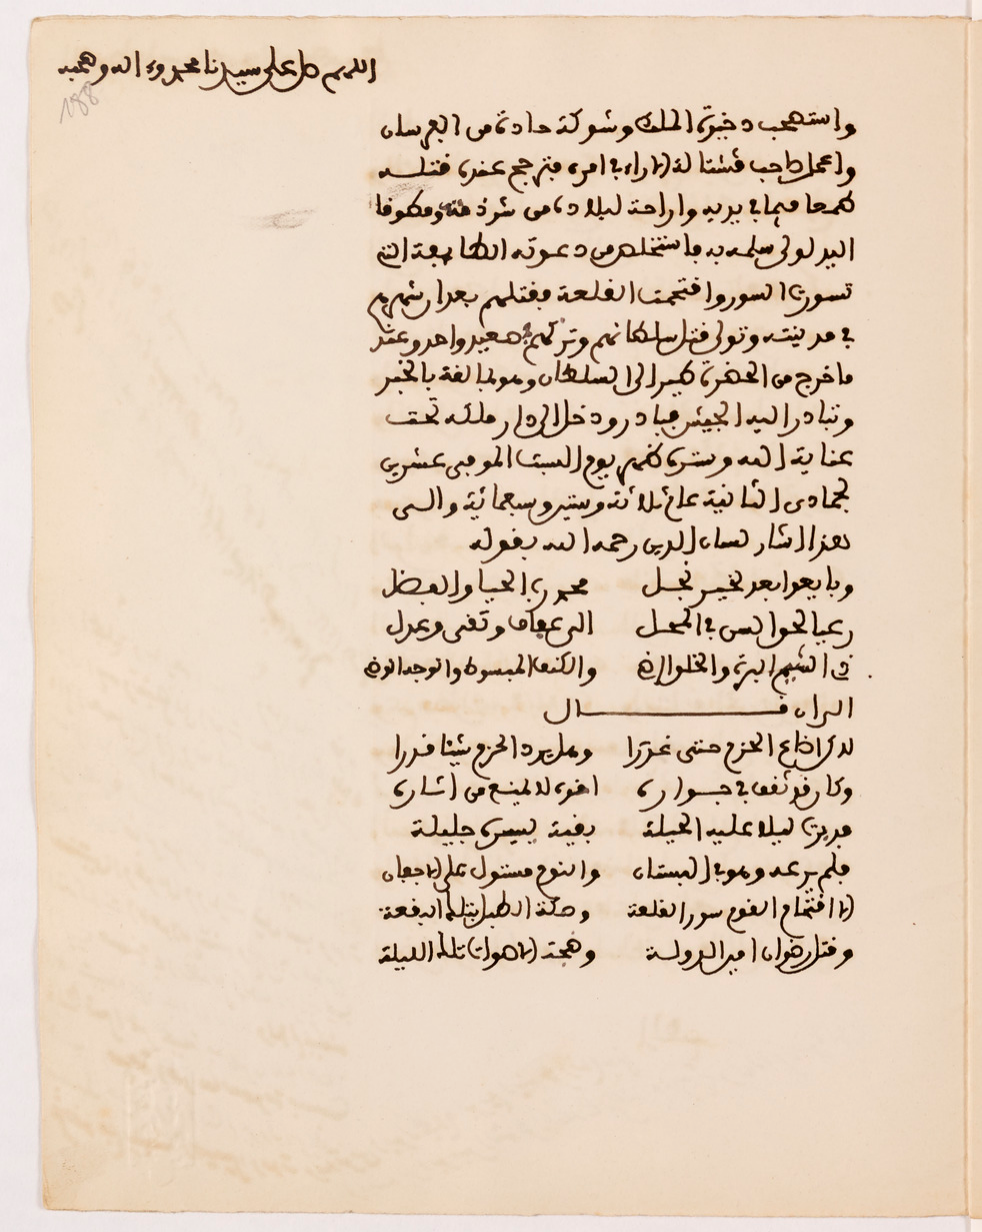 اللهم صل على سيدنا محمد وءاله وصحبه
188
واستصحب ذخيرة الملك وشوكة حادة من الفرسان
واعمل صاحب قشتالة الاراء في امره فترجح عنده قتله
طمعا فيما في يديه واراحة لبلاده من شرذمته ومكوفا
اليد لولي سلمه به فاستخلص من دعوته الطايفة التي
تسورت السور وافتحمت القلعة فقتلهم بعد ان شهرهم
في مدينته وتولى قتل سلطانهم وتركهم في صعيد واحد وعند
ما خرج من الحضرة طير الى السلطان وهو بمالقة بالخبر
وتبادر اليه الجيش فبادر ودخل الى دار ملكه تحت
عناية الله وستره ظهر يوم السبت الموفي عشرين
لجمادى الثانية عام ثلاثة وستين وسبعمائة والى
هذا اشار لسان الدين رحمه الله بقوله
وبايعوا بعد لخير نجل محمد رب الحيا والفضل
رعيا لحق السن في المحل الى عفاف وتقى وعدل
ذي الشيم البرة والخلق الرضي والكنف المبسوط والوجد الوضي
الى ان قال
لكن اضاع الحزم حتى غررا وهل يرد الحزم شيئا قدرا
وكان قد ثقف في جواره اخوه لا يمنع من اشاره
فدبرت ليلا عليه الحيلة بفية يسيرة جليلة
فلم يرعه وهو في البستان والنوم مستول على الاجفان
الا اقتحام القوم سور القلعة وصكة الطبل بتلك البقعة
وقتل رضوان امير الدولة وهجة الاصوات تلك الليلة